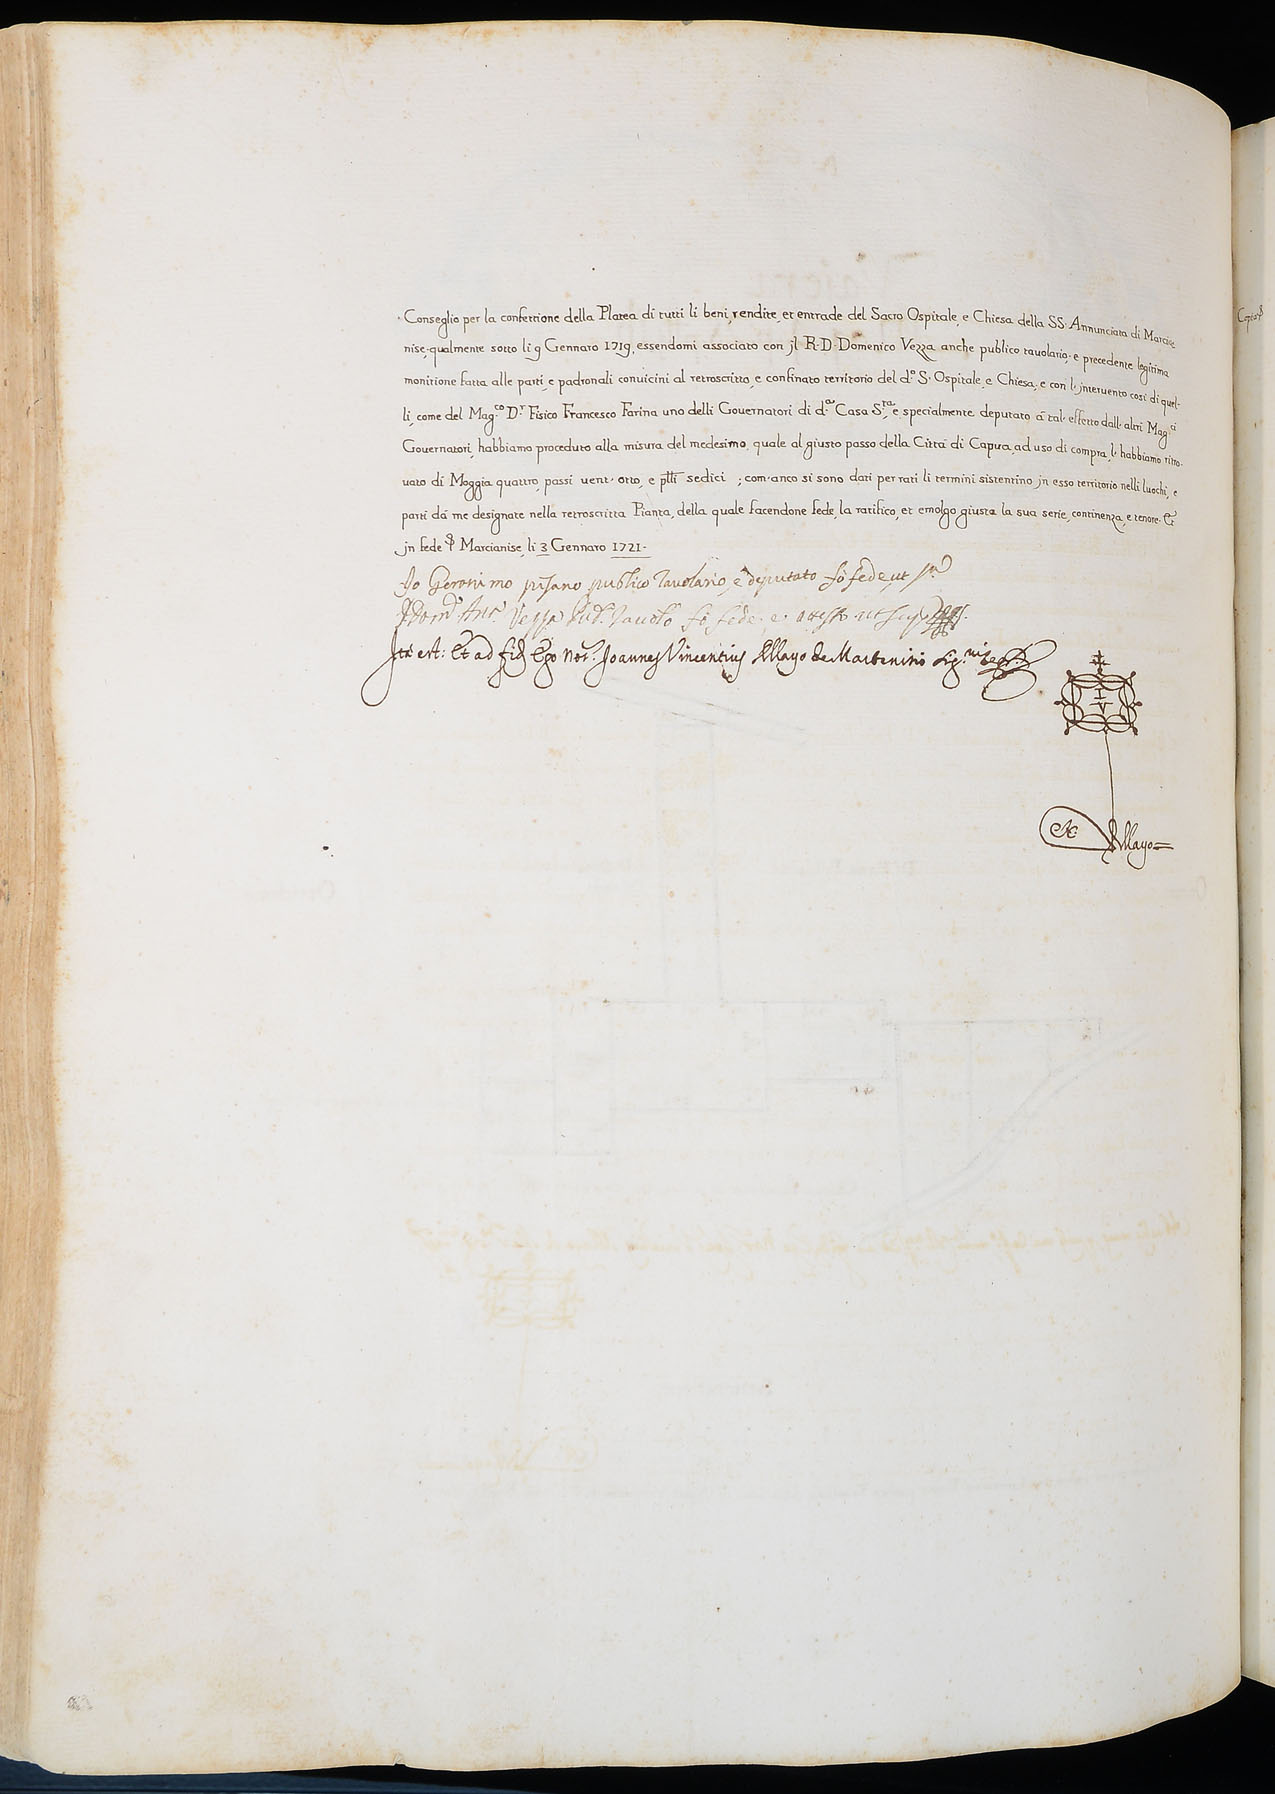 Conseglio per la confettione della Platea di tutti li beni, rendite, et entrade del Sacro Ospitale, e Chiesa della SS. Annunciata di Marcia-
nise, qualmente sotto li 9 Gennaro 1719, essendomi associato con jl R. D. Domenico Vezza anche publico tavolario, e precedente legitima
monitione fatta alle parti, e padronali convicini al retroscritto, e confinato territorio del d.º S. Ospitale, e Chiesa, e con l'jntervento così di quel-
li, come del Mag.co D.r Fisico Francesco Farina uno delli Governatori di d.a Casa S.ta, e specialmente deputato á tal' effetto dall' altri Mag.ci
Governatori, habbiamo proceduto alla misura del medesimo, quale al giusto passo della Cittá di Capua, ad uso di compra, l' habbiamo ritro-
vato di Moggia quattro, passi vent' otto, e ptti sedici ; com' anco si sono dati per rati li termini sistentino jn esso territorio nelli luochi, e
parti dá me designate nella retroscritta Pianta, della quale facendone fede, la ratifico, et emolgo giusta la sua serie, continenza, e tenore. Et
jn fede &. Marcianise, li 3 Gennaro 1721.
Io Geronimo pisano publico Tavolario, e deputato fò fede ut s.a
D. Dom.º Ant.º Vezza Tavol.º fò fede, e attesto ut sup.
Ita est: Et ad fid. Ego Not.r Joannes Vincentius Allayo de Martenisio sig.vi reg.s
I
V
Allayo